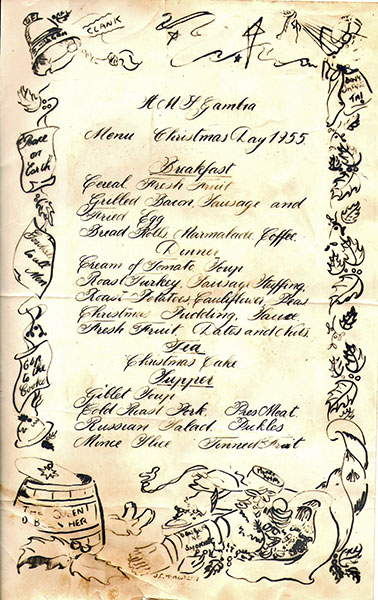 CLANK
H M S Gambia
Menu Christmas Day 1955.
Peace
on
Earth
Breakfast
Cereal, Fresh Fruit
Grilled Bacon, Sausage and
Fried Egg
Bread Rolls Marmalade Coffee.
Dinner
Cream of Tomato Soup
Roast Turkey, Sausage Stuffing,
Roast Potatoes, Cauliflower, Peas
Christmas Pudding, Sauce
Fresh Fruit, Dates and Nuts
Tea
Christmas Cake
Supper
Giblet Soup
Cold Roast Pork, Pres Meat
Russian Salad Pickles
Mince Pies Tinned Fruit
to
the
Cooks
THE QUEEN